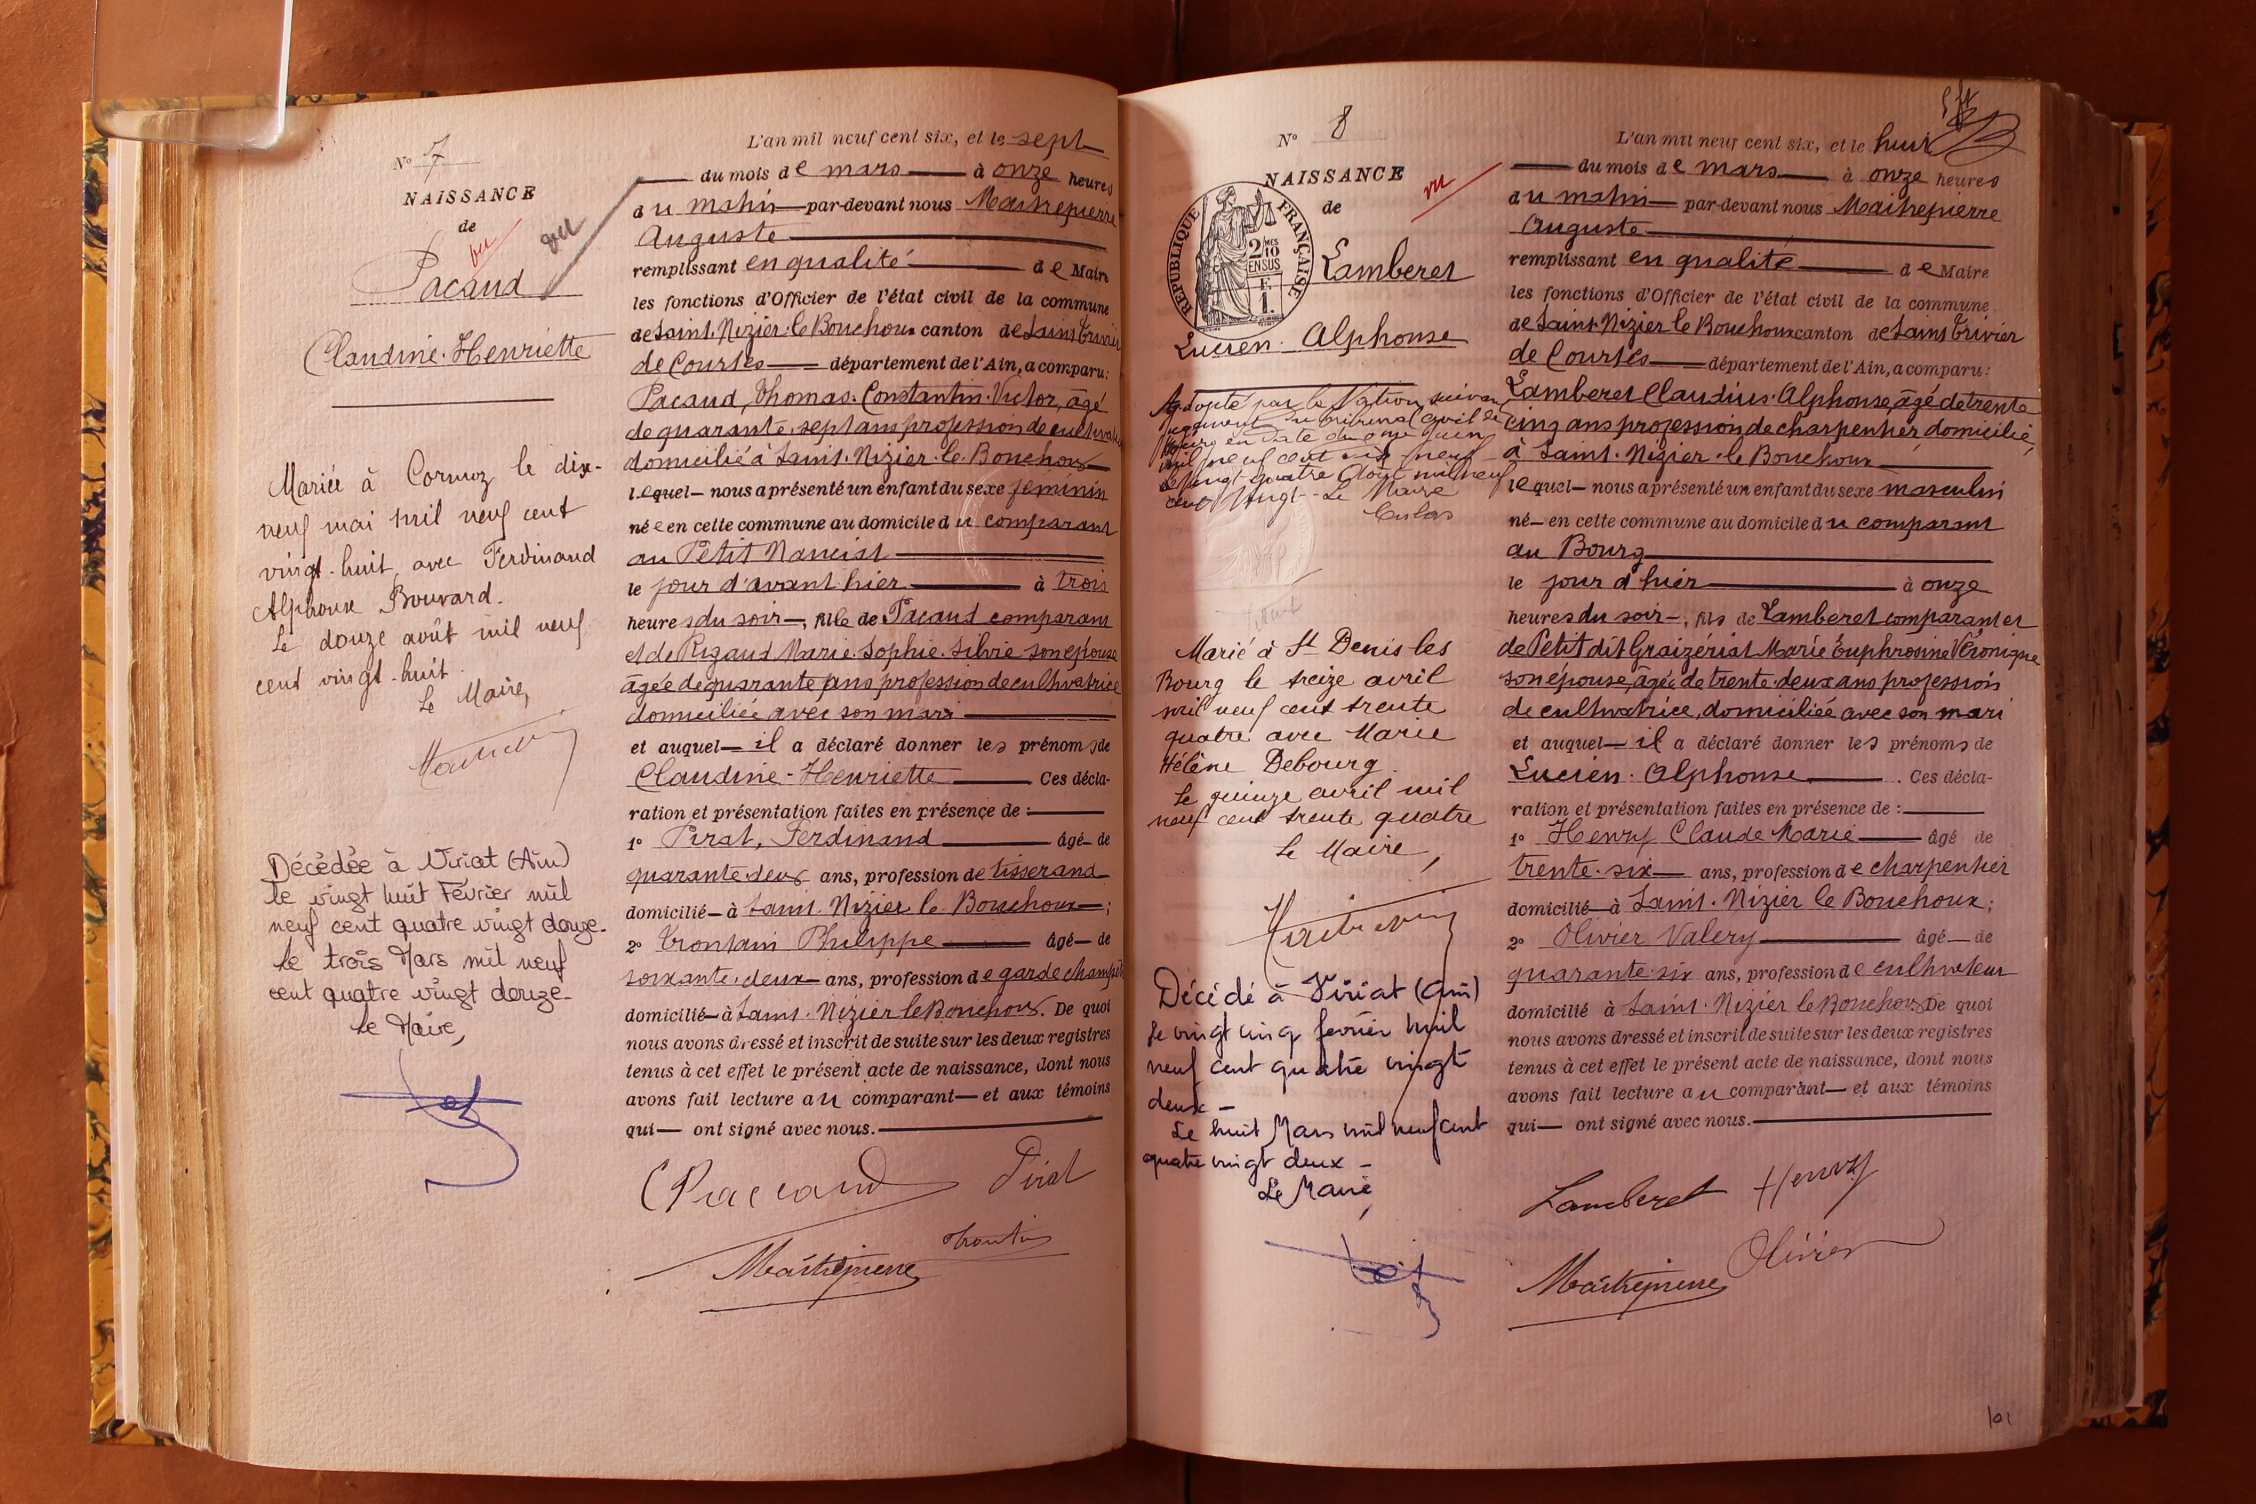 N° 7
NAISSANCE
de
vu
vu
Pacaud
Claudine-Henriette
Mariée à Cormoz le dix-
neuf mai mil neuf cent
vingt-huit, avec Ferdinand
Alphonse Bouvard.
Le douze août mil neuf
cent vingt-huit.
Le Maire,
Décédée à Viriat (Ain)
le vingt huit Février mil
neuf cent quatre vingt douze.
Le trois Mars mil neuf
cent quatre vingt douze.
Le Maire,
L'an mil neuf cent six, et le sept
du mois de mars à onze heures
du matin par-devant nous Maitrepierre
Auguste
remplissant en qualité de Maire
les fonctions d'Officier de l'état civil de la commune
de Saint-Nizier-le-Bouchoux canton de Saint Trivier
de Courtes département de l'Ain, a comparu:
Pacaud, Thomas-Constantin-Victor, âgé
de quarante-sept ans profession de cultivateur
domicilié à Saint-Nizier-le-Bouchoux
lequel nous a présenté un enfant du sexe féminin
née en cette commune au domicile du comparant
au Petit Nancist
le jour d'avant hier à trois
heures du soir, fille de Pacaud comparant
et de Rigaud Marie-Sophie-Silvie son épouse
âgée de quarante ans profession de cultivatrice
domiciliée avec son mari
et auquel il a déclaré donner les prénoms de
Claudine-Henriette Ces décla-
ration et présentation faites en présence de :
1° Pirat, Ferdinand âgé de
quarante-deux ans, profession de tisserand
domicilié à Saint-Nizier le Bouchoux ;
2° Trontain Philippe âgé de
soixante-deux ans, profession de garde champêt
domicilié à Saint-Nizier le Bouchoux. De quoi
nous avons dressé et inscrit de suite sur les deux registres
tenus à cet effet le présent acte de naissance, dont nous
avons fait lecture au comparant et aux témoins
qui ont signé avec nous.
Paccaud Pirat
Trontin
Maitrepierre
N° 8
NAISSANCE
de
vu
RÉPUBLIQUE FRANÇAISE
2/10 MES
EN SUS
F.
1.
Lamberet
Lucien-Alphonse
Adopté par la Nation suivant
jugement du tribunal civil de
Bourg en date du onze juin
mil neuf cent dix neuf
Le vingt quatre Août mil neuf
cent vingt. Le Maire
Marié à St Denis les
Bourg le treize avril
mil neuf cent trente
quatre avec Marie
Hélène Debourg.
Le quinze avril mil
neuf cent trente quatre
Le Maire,
Décédé à Viriat (Ain)
le vingt cinq février mil
neuf cent quatre vingt
deux -
Le huit Mars mil neuf cent
quatre vingt deux -
Le Maire,
L'an mil neuf cent six, et le huit
du mois de mars à onze heures
du matin par-devant nous Maitrepierre
Auguste
remplissant en qualité de Maire
les fonctions d'Officier de l'état civil de la commune
de Saint-Nizier le Bouchoux canton de Saint Trivier
de Courtes département de l'Ain, a comparu:
Lamberet Claudius-Alphonse, âgé de trente
cinq ans profession de charpentier domicilié
à Saint-Nizier-le Bouchoux
lequel nous a présenté un enfant du sexe masculin
né en cette commune au domicile du comparant
au Bourg
le jour d'hier à onze
heures du soir, fils de Lamberet comparant et
de Petit dit Graizériat Marie Euphrosine Véronique
son épouse, âgée de trente-deux ans profession
de cultivatrice, domiciliée avec son mari
et auquel il a déclaré donner les prénoms de
Lucien-Alphonse. Ces décla-
ration et présentation faites en présence de :
1° Henry Claude Marie âgé de
trente-six ans, profession de charpentier
domicilié à Saint-Nizier le Bouchoux ;
2° Olivier Valery âgé de
quarante-six ans, profession de cultivateur
domicilié à Saint-Nizier le Bouchoux De quoi
nous avons dressé et inscrit de suite sur les deux registres
tenus à cet effet le présent acte de naissance, dont nous
avons fait lecture au comparant et aux témoins
qui ont signé avec nous.
Lamberet Henry
Olivier
Maitrepierre
101